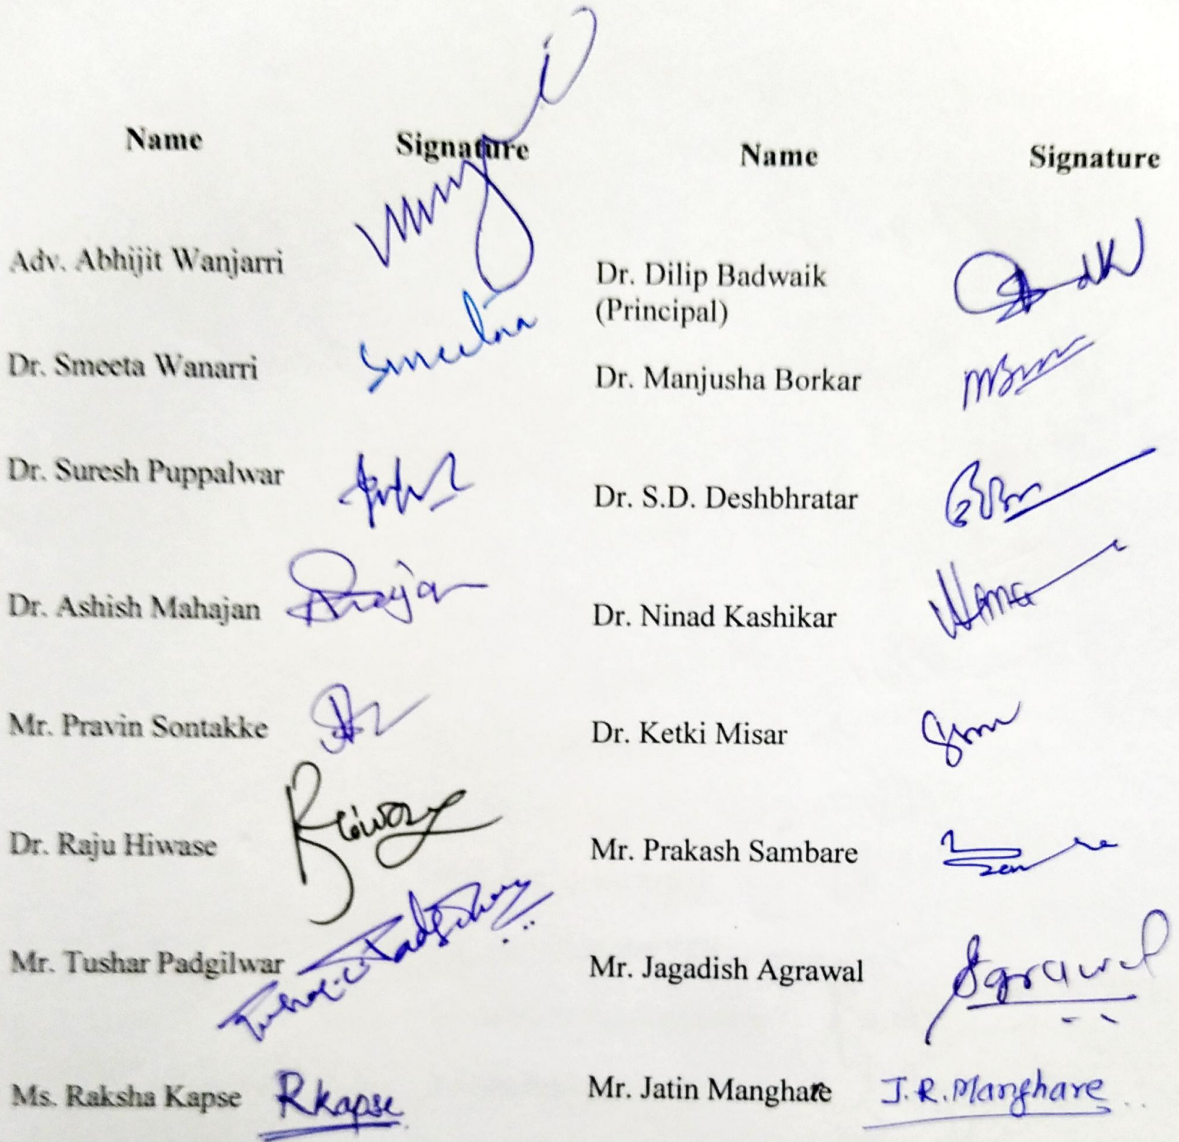 Name Signature Name Signature
Adv. Abhijit Wanjarri
Dr. Dilip Badwaik
(Principal)
Dr. Smeeta Wanarri Smeetaa Dr. Manjusha Borkar
Dr. Suresh Puppalwar Dr. S.D. Deshbhratar
Dr. Ashish Mahajan Dr. Ninad Kashikar
Mr. Pravin Sontakke Dr. Ketki Misar
Dr. Raju Hiwase Mr. Prakash Sambare
Mr. Tushar Padgilwar Mr. Jagadish Agrawal Agrawal
Ms. Raksha Kapse Rkapse Mr. Jatin Manghare J.R.Manghare